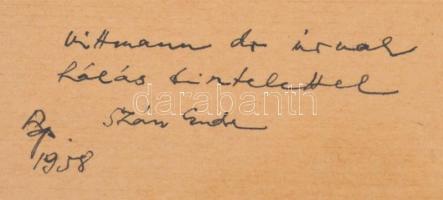 Vittmann dr úrnak
hálás tisztelettel
Szász Endre
Bp.
1958
darabanth